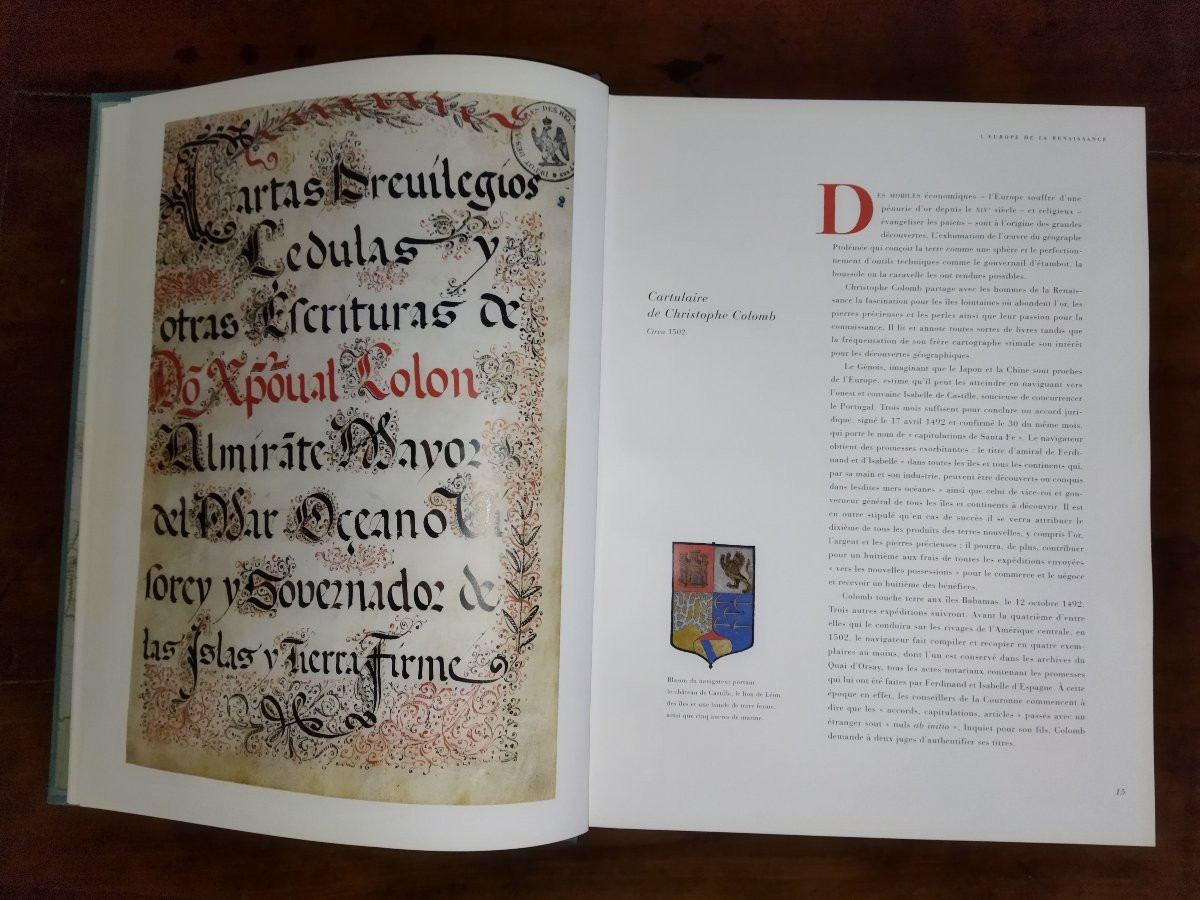 Cartas Preuilegios
Cedulas y
otras Escrituras de
Dõ Xpõual Colon
Almirãte Mayor
del Mar Oçeano Vi
sorey y Governador de
las Islas y Tierra Firme
L'EUROPE DE LA RENAISSANCE
Cartulaire
de Christophe Colomb
Circa 1502
DES MOBILES économiques – l'Europe souffre d'une
pénurie d'or depuis le XIVe siècle – et religieux –
évangéliser les païens – sont à l'origine des grandes
découvertes. L'exhumation de l'œuvre du géographe
Ptolémée qui conçoit la terre comme une sphère et le perfection-
nement d'outils techniques comme le gouvernail d'étambot, la
boussole ou la caravelle les ont rendues possibles.
Christophe Colomb partage avec les hommes de la Renais-
sance la fascination pour les îles lointaines où abondent l'or, les
pierres précieuses et les perles ainsi que leur passion pour la
connaissance. Il lit et annote toutes sortes de livres tandis que
la fréquentation de son frère cartographe stimule son intérêt
pour les découvertes géographiques.
Le Génois, imaginant que le Japon et la Chine sont proches
de l'Europe, estime qu'il peut les atteindre en naviguant vers
l'ouest et convainc Isabelle de Castille, soucieuse de concurrencer
le Portugal. Trois mois suffisent pour conclure un accord juri-
dique, signé le 17 avril 1492 et confirmé le 30 du même mois,
qui porte le nom de « capitulations de Santa Fe ». Le navigateur
obtient des promesses exorbitantes : le titre d'amiral de Ferdi-
nand et d'Isabelle « dans toutes les îles et tous les continents qui,
par sa main et son industrie, peuvent être découverts ou conquis
dans lesdites mers océanes » ainsi que celui de vice-roi et gou-
verneur général de tous les îles et continents à découvrir. Il est
en outre stipulé qu'en cas de succès il se verra attribuer le
dixième de tous les produits des terres nouvelles, y compris l'or,
l'argent et les pierres précieuses ; il pourra, de plus, contribuer
pour un huitième aux frais de toutes les expéditions envoyées
« vers les nouvelles possessions » pour le commerce et le négoce
et recevoir un huitième des bénéfices.
Colomb touche terre aux îles Bahamas, le 12 octobre 1492.
Trois autres expéditions suivront. Avant la quatrième d'entre
elles qui le conduira sur les rivages de l'Amérique centrale, en
1502, le navigateur fait compiler et recopier en quatre exem-
plaires au moins, dont l'un est conservé dans les archives du
Quai d'Orsay, tous les actes notariaux contenant les promesses
qui lui ont été faites par Ferdinand et Isabelle d'Espagne. À cette
époque en effet, les conseillers de la Couronne commencent à
dire que les « accords, capitulations, articles » passés avec un
étranger sont « nuls ab initio ». Inquiet pour son fils, Colomb
demande à deux juges d'authentifier ses titres.
Blason du navigateur portant
le château de Castille, le lion de Léon,
des îles et une bande de terre ferme,
ainsi que cinq ancres de marine.
15